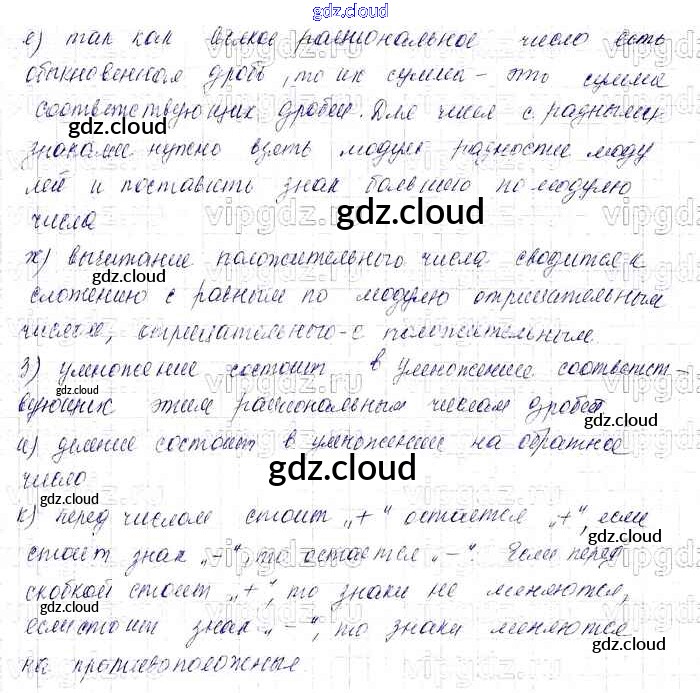 gdz.cloud
е) так как всякое рациональное число есть
обыкновенная дробь, то их сумма - это сумма
соответствующих дробей. Для чисел с разными
gdz.cloud
знаками нужно взять модуль разности моду
лей и поставить знак большего по модулю
gdz.cloud
числа
ж) вычитание положительного числа сводится к
gdz.cloud
сложению с равным по модулю отрицательным
числом, отрицательного - с положительным.
з) умножение состоит в умножение соответст-
gdz.cloud
вующих этим рациональным числам дробей
gdz.cloud
и) деление состоит в умножении на обратное
gdz.cloud
число
к) перед числом стоит „+“ остается „+“, если
стоит знак „-“, то остается „-“. Если перед
скобкой стоит „+“, то знаки не меняются,
gdz.cloud
если стоит знак „-“, то знаки меняются
gdz.cloud
на противоположные.